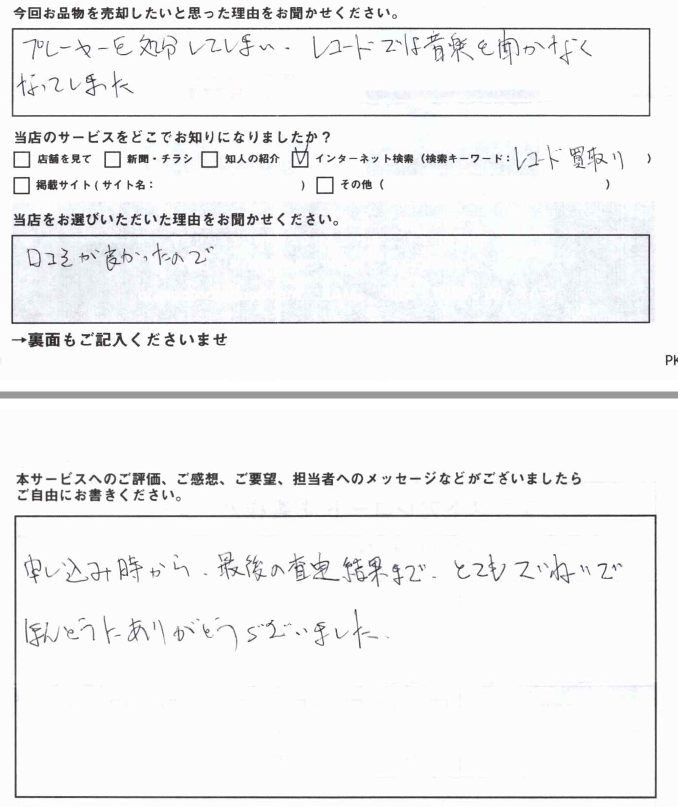 今回お品物を売却したいと思った理由をお聞かせください。
プレーヤーを処分してしまい、レコードでは音楽を聞かなく
なってしまった
当店のサービスをどこでお知りになりましたか?
□ 店舗を見て □ 新聞・チラシ □ 知人の紹介 ☑ インターネット検索 (検索キーワード:レコード買取り )
□ 掲載サイト(サイト名: ) □ その他 ( )
当店をお選びいただいた理由をお聞かせください。
口コミが良かったので
→裏面もご記入くださいませ
PK
本サービスへのご評価、ご感想、ご要望、担当者へのメッセージなどがございましたら
ご自由にお書きください。
申し込み時から、最後の査定結果まで、とてもていねいで
ほんとうにありがとうございました.